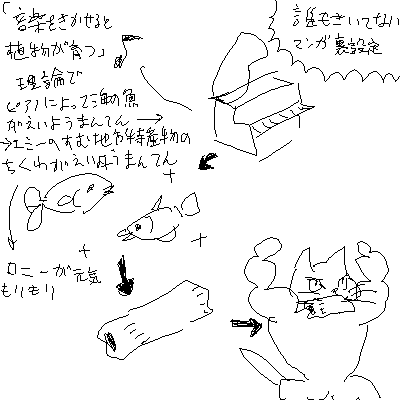 「音楽をきかせると
植物が育つ」
理論で
ピアノによって海の魚
がえいようまんてん
→エミーのすむ地方特産物の
ちくわがえいようまんてん
ロニーが元気
もりもり
誰もきいてない
マンガ裏設定